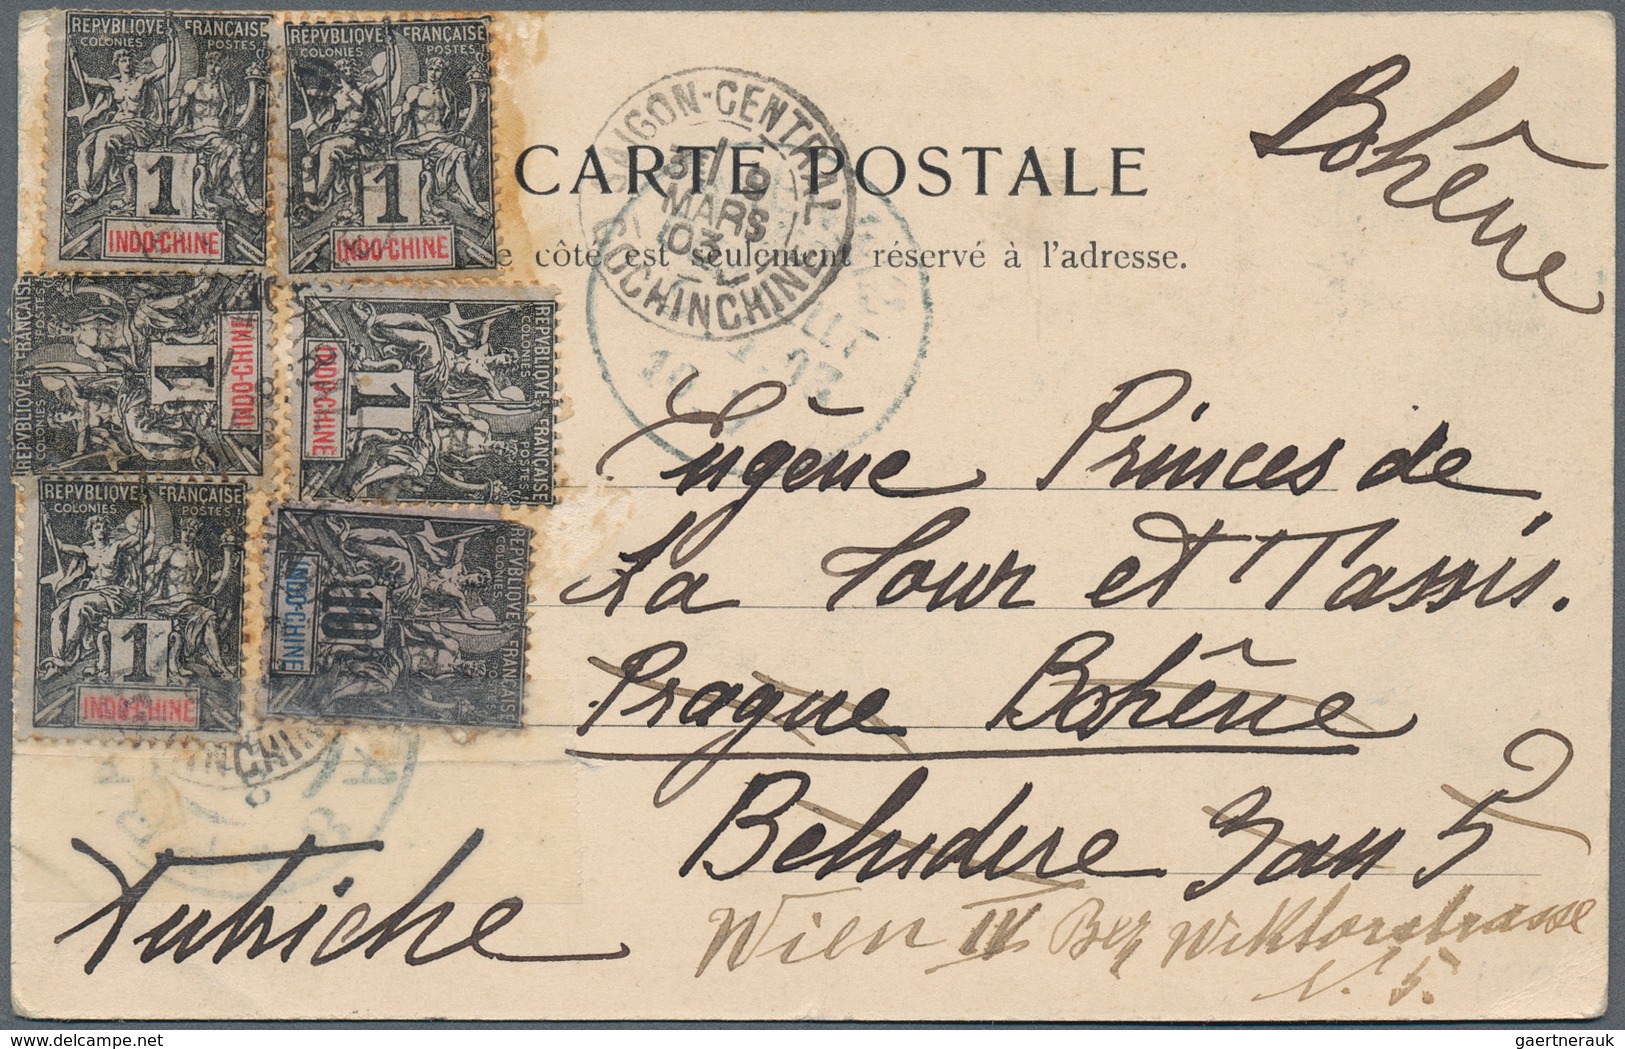 REPVBLIQVE FRANÇAISE
COLONIES POSTES
1
INDO-CHINE
REPVBLIQVE FRANÇAISE
COLONIES POSTES
1
INDO-CHINE
REPVBLIQVE FRANÇAISE
COLONIES POSTES
1
INDO-CHINE
REPVBLIQVE FRANÇAISE
COLONIES POSTES
1
INDO-CHINE
REPVBLIQVE FRANÇAISE
COLONIES POSTES
1
INDO-CHINE
REPVBLIQVE FRANÇAISE
COLONIES POSTES
10
INDO-CHINE
SAIGON-CENTRAL
9
MARS
03
COCHINCHINE
CARTE POSTALE
côté est seulement réservé à l'adresse.
Bohême
Eugène Princes de
La Tour et Tassis.
Prague Bohême
Belvidere 5
Autriche
Wien IV Bez Wiktorstrasse
N. 5.
gaertnerauk